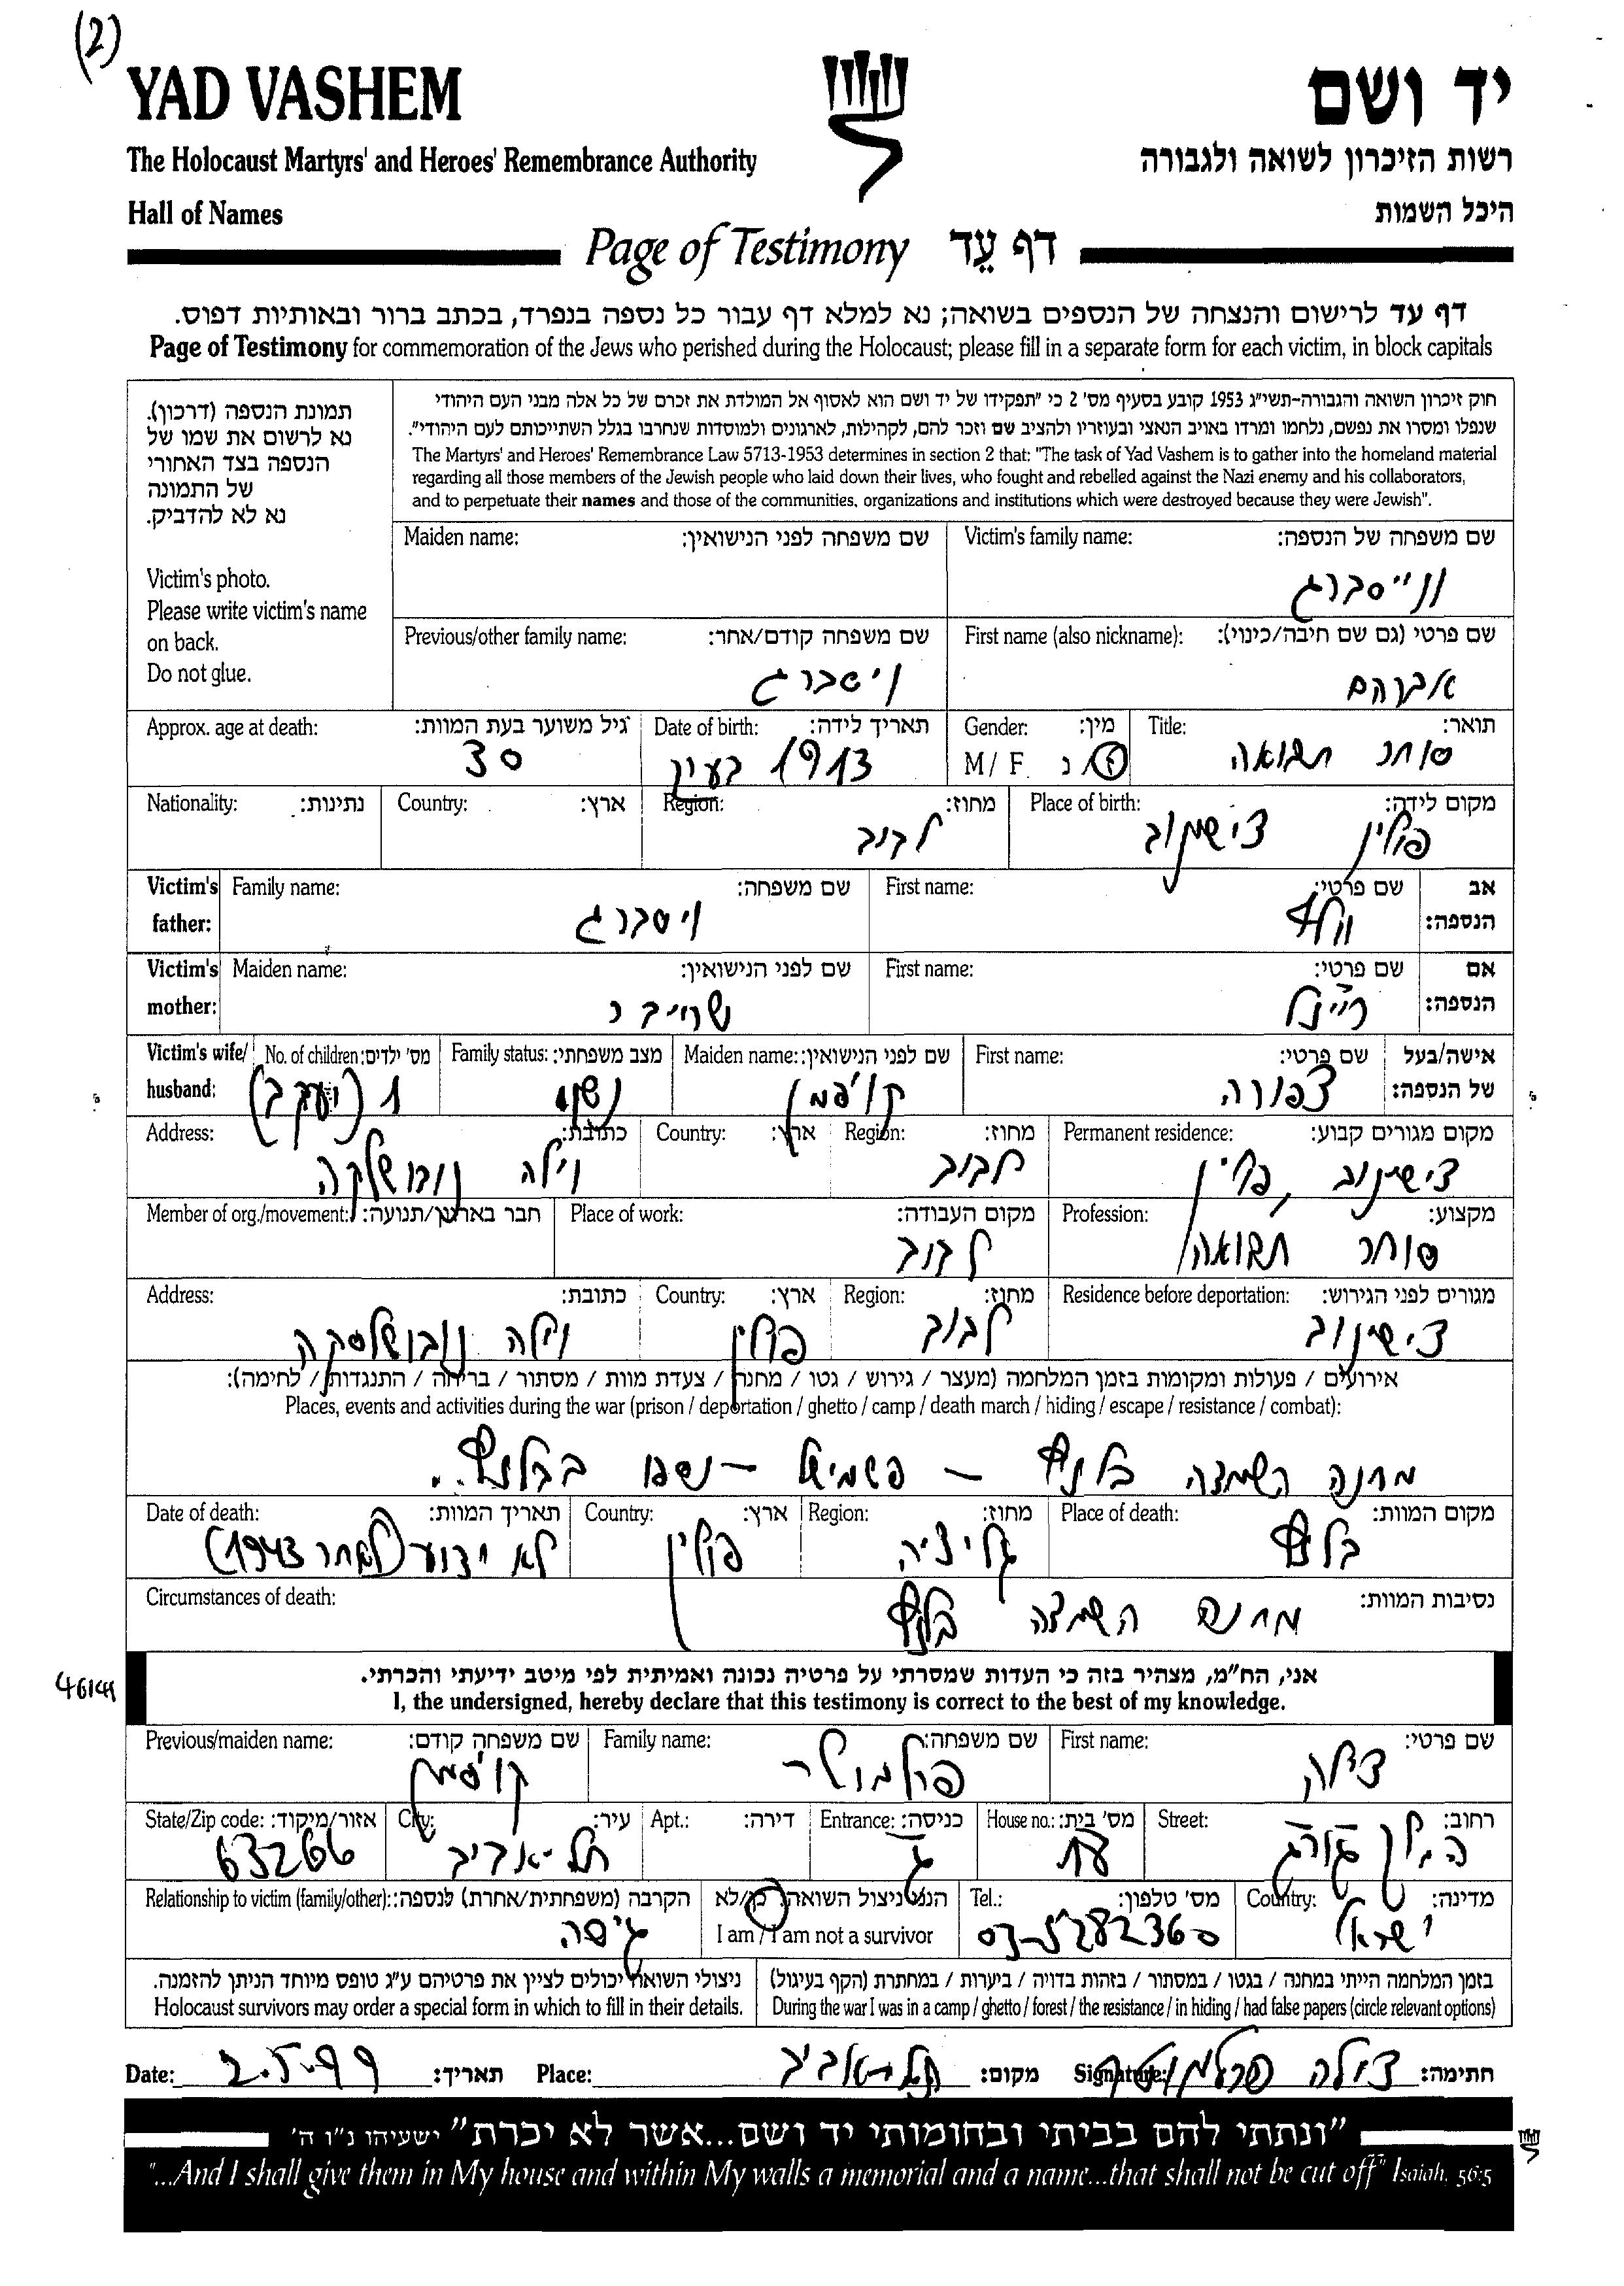 (2)
YAD VASHEM
יד ושם
The Holocaust Martyrs' and Heroes' Remembrance Authority
רשות הזיכרון לשואה ולגבורה
Hall of Names
היכל השמות
Page of Testimony דף עֵד
דף עד לרישום והנצחה של הנספים בשואה; נא למלא דף עבור כל נספה בנפרד, בכתב ברור ובאותיות דפוס.
Page of Testimony for commemoration of the Jews who perished during the Holocaust; please fill in a separate form for each victim, in block capitals
תמונת הנספה (דרכון).
נא לרשום את שמו של
הנספה בצד האחורי
של התמונה
נא לא להדביק.
Victim's photo.
Please write victim's name
on back.
Do not glue.
חוק זיכרון השואה והגבורה-תשי"ג 1953 קובע בסעיף מס' 2 כי "תפקידו של יד ושם הוא לאסוף אל המולדת את זכרם של כל אלה מבני העם היהודי
שנפלו ומסרו את נפשם, נלחמו ומרדו באויב הנאצי ובעוזריו ולהציב שם וזכר להם, לקהילות, לארגונים ולמוסדות שנחרבו בגלל השתייכותם לעם היהודי".
The Martyrs' and Heroes' Remembrance Law 5713-1953 determines in section 2 that: "The task of Yad Vashem is to gather into the homeland material
regarding all those members of the Jewish people who laid down their lives, who fought and rebelled against the Nazi enemy and his collaborators,
and to perpetuate their names and those of the communities, organizations and institutions which were destroyed because they were Jewish".
Victim's family name: שם משפחה של הנספה:
וייסברג
Maiden name: שם משפחה לפני הנישואין:
First name (also nickname): שם פרטי (גם שם חיבה/כינוי):
אברהם
Previous/other family name: שם משפחה קודם/אחר:
וישברג
Title: תואר:
סוחר תבואה
Gender: מין:
M/ F ז/נ
Date of birth: תאריך לידה:
1913 בערך
Approx. age at death: גיל משוער בעת המוות:
30
Place of birth: מקום לידה:
פולין צישינוב
Region: מחוז:
לבוב
Country: ארץ:
Nationality: נתינות:
Victim's father: אב הנספה:
First name: שם פרטי:
וולף
Family name: שם משפחה:
ויסברג
Victim's mother: אם הנספה:
First name: שם פרטי:
רייזל
Maiden name: שם לפני הנישואין:
שרייבר
Victim's wife/ husband: אישה/בעל של הנספה:
First name: שם פרטי:
צפורה
Maiden name: שם לפני הנישואין:
קויפמן
Family status: מצב משפחתי:
נשוי
No. of children: מס' ילדים:
1 (יעקב)
Permanent residence: מקום מגורים קבוע:
צישינוב, פולין
Region: מחוז:
לבוב
Country: ארץ:
Address: כתובת:
וילה
Profession: מקצוע:
סוחר תבואה
Place of work: מקום העבודה:
לבוב
Member of org./movement: חבר בארגון/תנועה:
Residence before deportation: מגורים לפני הגירוש:
צישינוב
Region: מחוז:
לבוב
Country: ארץ:
פולין
Address: כתובת:
וילה
אירועים / פעולות ומקומות בזמן המלחמה (מעצר / גירוש / גטו / מחנה / צעדת מוות / מסתור / בריחה / התנגדות / לחימה):
Places, events and activities during the war (prison / deportation / ghetto / camp / death march / hiding / escape / resistance / combat):
מחנה השמדה בלזץ – פשמישל – נספו בבלזץ..
Place of death: מקום המוות:
בלזץ
Region: מחוז:
גליציה
Country: ארץ:
פולין
Date of death: תאריך המוות:
לא ידוע (לאחר 1943)
Circumstances of death: נסיבות המוות:
מחנה השמדה בלזץ
אני, הח"מ, מצהיר בזה כי העדות שמסרתי על פרטיה נכונה ואמיתית לפי מיטב ידיעתי והכרתי.
I, the undersigned, hereby declare that this testimony is correct to the best of my knowledge.
First name: שם פרטי:
צילה
Family name: שם משפחה:
פרלמוטר
Previous/maiden name: שם משפחה קודם:
קויפמן
Street: רחוב:
House no.: מס' בית:
18
Entrance: כניסה:
ג
Apt.: דירה:
City: עיר:
תל-אביב
State/Zip code: אזור/מיקוד:
63266
Country: מדינה:
ישראל
Tel.: מס' טלפון:
03-5282360
הנני ניצול השואה: כן/לא
I am / I am not a survivor
Relationship to victim (family/other): הקרבה (משפחתית/אחרת) לנספה:
גיסה
בזמן המלחמה הייתי במחנה / בגטו / במסתור / בזהות בדויה / ביערות / במחתרת (הקף בעיגול)
During the war I was in a camp / ghetto / forest / the resistance / in hiding / had false papers (circle relevant options)
ניצולי השואה יכולים לציין את פרטיהם ע"ג טופס מיוחד הניתן להזמנה.
Holocaust survivors may order a special form in which to fill in their details.
Date: 2.5.99 תאריך: Place: תל-אביב מקום: Signature: צילה פרלמוטר חתימה:
"ונתתי להם בביתי ובחומותי יד ושם...אשר לא יכרת" ישעיהו נ"ו ה'
"...And I shall give them in My house and within My walls a memorial and a name...that shall not be cut off" Isaiah, 56:5